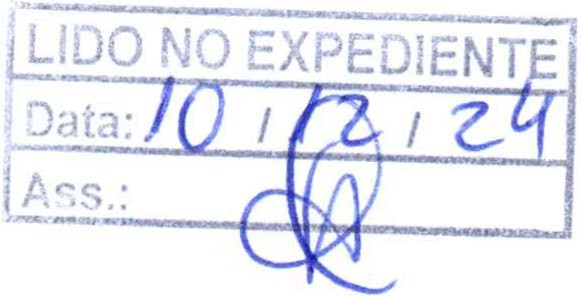 LIDO NO EXPEDIENTE
Data: 10 / 12 / 24
Ass.: